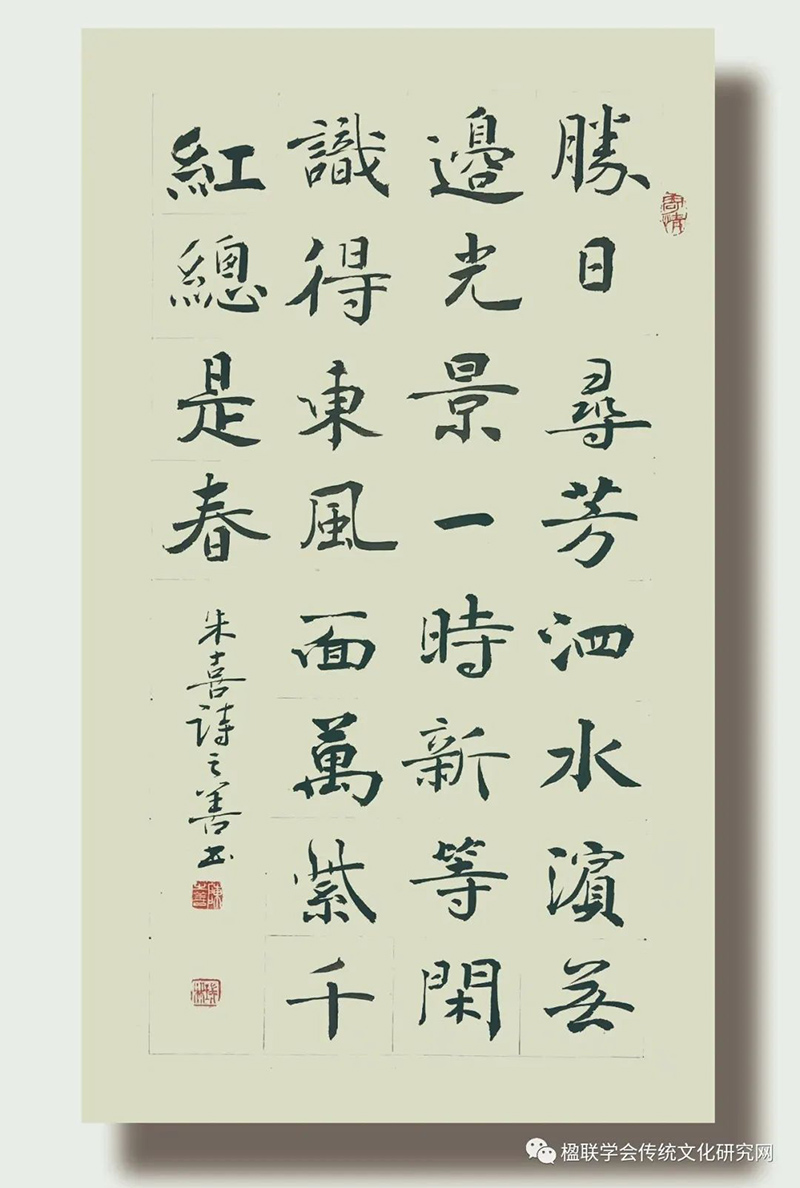 勝日尋芳泗水濱無
邊光景一時新等閑
識得東風面萬紫千
紅總是春
朱喜詩之善书
楹联学会传统文化研究网